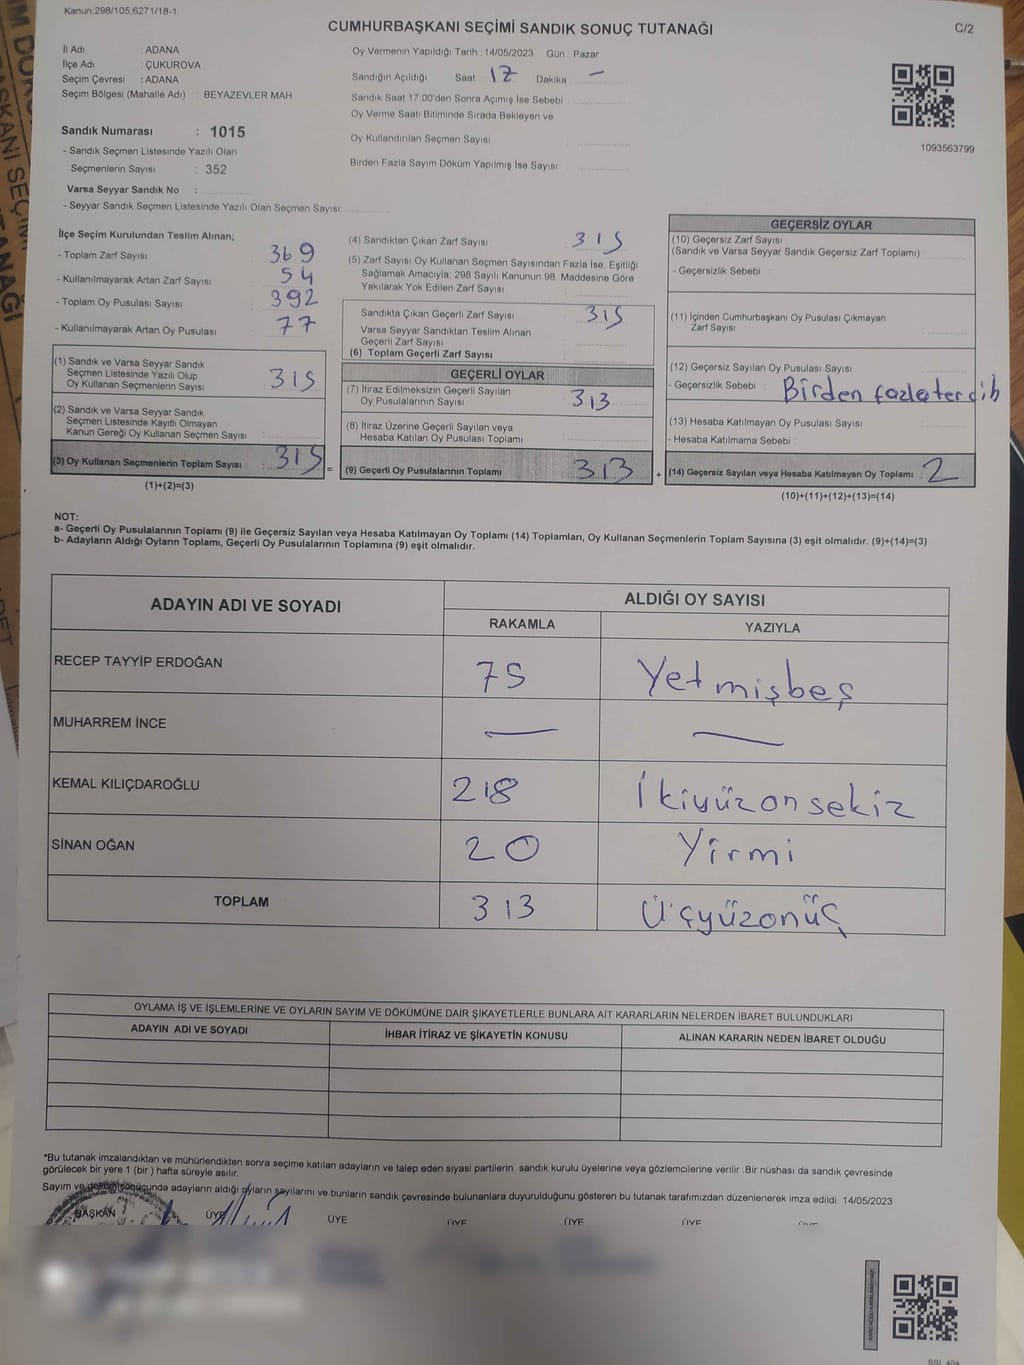 Kanun:298/105,6271/18-1
CUMHURBAŞKANI SEÇİMİ SANDIK SONUÇ TUTANAĞI
C/2
İl Adı : ADANA
İlçe Adı : ÇUKUROVA
Seçim Çevresi : ADANA
Seçim Bölgesi (Mahalle Adı) : BEYAZEVLER MAH
Sandık Numarası : 1015
- Sandık Seçmen Listesinde Yazılı Olan
Seçmenlerin Sayısı : 352
Varsa Seyyar Sandık No :
- Seyyar Sandık Seçmen Listesinde Yazılı Olan Seçmen Sayısı:
Oy Vermenin Yapıldığı Tarih : 14/05/2023 Gün : Pazar
Sandığın Açıldığı Saat : 17 Dakika : —
Sandık Saat 17:00'den Sonra Açımış İse Sebebi :
Oy Verme Saati Bitiminde Sırada Bekleyen ve
Oy Kullandırılan Seçmen Sayısı :
Birden Fazla Sayım Döküm Yapılmış İse Sayısı :
1093563799
İlçe Seçim Kurulundan Teslim Alınan;
- Toplam Zarf Sayısı : 369
- Kullanılmayarak Artan Zarf Sayısı : 54
- Toplam Oy Pusulası Sayısı : 392
- Kullanılmayarak Artan Oy Pusulası : 77
(1) Sandık ve Varsa Seyyar Sandık
Seçmen Listesinde Yazılı Olup
Oy Kullanan Seçmenlerin Sayısı : 315
(2) Sandık ve Varsa Seyyar Sandık
Seçmen Listesinde Kayıtlı Olmayan
Kanun Gereği Oy Kullanan Seçmen Sayısı :
(3) Oy Kullanan Seçmenlerin Toplam Sayısı : 315 =
(1)+(2)=(3)
(4) Sandıktan Çıkan Zarf Sayısı : 315
(5) Zarf Sayısı Oy Kullanan Seçmen Sayısından Fazla İse, Eşitliği
Sağlamak Amacıyla, 298 Sayılı Kanunun 98. Maddesine Göre
Yakılarak Yok Edilen Zarf Sayısı :
Sandıkta Çıkan Geçerli Zarf Sayısı : 315
Varsa Seyyar Sandıktan Teslim Alınan
Geçerli Zarf Sayısı :
(6) Toplam Geçerli Zarf Sayısı :
GEÇERLİ OYLAR
(7) İtiraz Edilmeksizin Geçerli Sayılan
Oy Pusulalarının Sayısı : 313
(8) İtiraz Üzerine Geçerli Sayılan veya
Hesaba Katılan Oy Pusulası Toplamı :
(9) Geçerli Oy Pusulalarının Toplamı : 313 +
GEÇERSİZ OYLAR
(10) Geçersiz Zarf Sayısı
(Sandık ve Varsa Seyyar Sandık Geçersiz Zarf Toplamı) :
- Geçersizlik Sebebi :
(11) İçinden Cumhurbaşkanı Oy Pusulası Çıkmayan
Zarf Sayısı :
(12) Geçersiz Sayılan Oy Pusulası Sayısı :
- Geçersizlik Sebebi : Birden fazla tercih
(13) Hesaba Katılmayan Oy Pusulası Sayısı :
- Hesaba Katılmama Sebebi :
(14) Geçersiz Sayılan veya Hesaba Katılmayan Oy Toplamı : 2
(10)+(11)+(12)+(13)=(14)
NOT:
a- Geçerli Oy Pusulalarının Toplamı (9) ile Geçersiz Sayılan veya Hesaba Katılmayan Oy Toplamı (14) Toplamları, Oy Kullanan Seçmenlerin Toplam Sayısına (3) eşit olmalıdır. (9)+(14)=(3)
b- Adayların Aldığı Oyların Toplamı, Geçerli Oy Pusulalarının Toplamına (9) eşit olmalıdır.
ADAYIN ADI VE SOYADI
ALDIĞI OY SAYISI
RAKAMLA YAZIYLA
RECEP TAYYİP ERDOĞAN 75 Yetmişbeş
MUHARREM İNCE — —
KEMAL KILIÇDAROĞLU 218 İkiyüzonsekiz
SİNAN OĞAN 20 Yirmi
TOPLAM 313 Üçyüzonüç
OYLAMA İŞ VE İŞLEMLERİNE VE OYLARIN SAYIM VE DÖKÜMÜNE DAİR ŞİKAYETLERLE BUNLARA AİT KARARLARIN NELERDEN İBARET BULUNDUKLARI
ADAYIN ADI VE SOYADI İHBAR İTİRAZ VE ŞİKAYETİN KONUSU ALINAN KARARIN NEDEN İBARET OLDUĞU
*Bu tutanak imzalandıktan ve mühürlendikten sonra seçime katılan adayların ve talep eden siyasi partilerin sandık kurulu üyelerine veya gözlemcilerine verilir. Bir nüshası da sandık çevresinde
görülecek bir yere 1 (bir ) hafta süreyle asılır.
Sayım ve döküm sonucunda adayların aldığı oyların sayılarını ve bunların sandık çevresinde bulunanlara duyurulduğunu gösteren bu tutanak tarafımızdan düzenlenerek imza edildi. 14/05/2023
BAŞKAN ÜYE ÜYE ÜYE ÜYE ÜYE